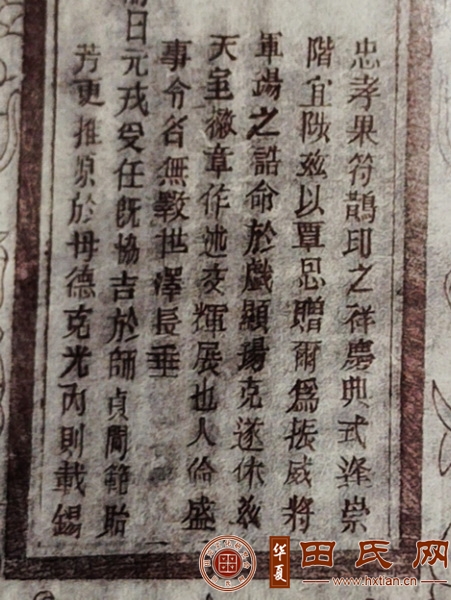 忠孝果符鵲印之祥慶典式逢崇
階宜陟茲以覃恩贈爾爲振威將
軍錫之誥命於戲顯揚克遂休茲
天室徽章作述交輝展也人倫盛
事令名無斁世澤長垂
日元戎受任旣協吉於師貞閫範貽
芳更推原於母德克光內則載錫
华夏
田氏网
www.hxtian.cn